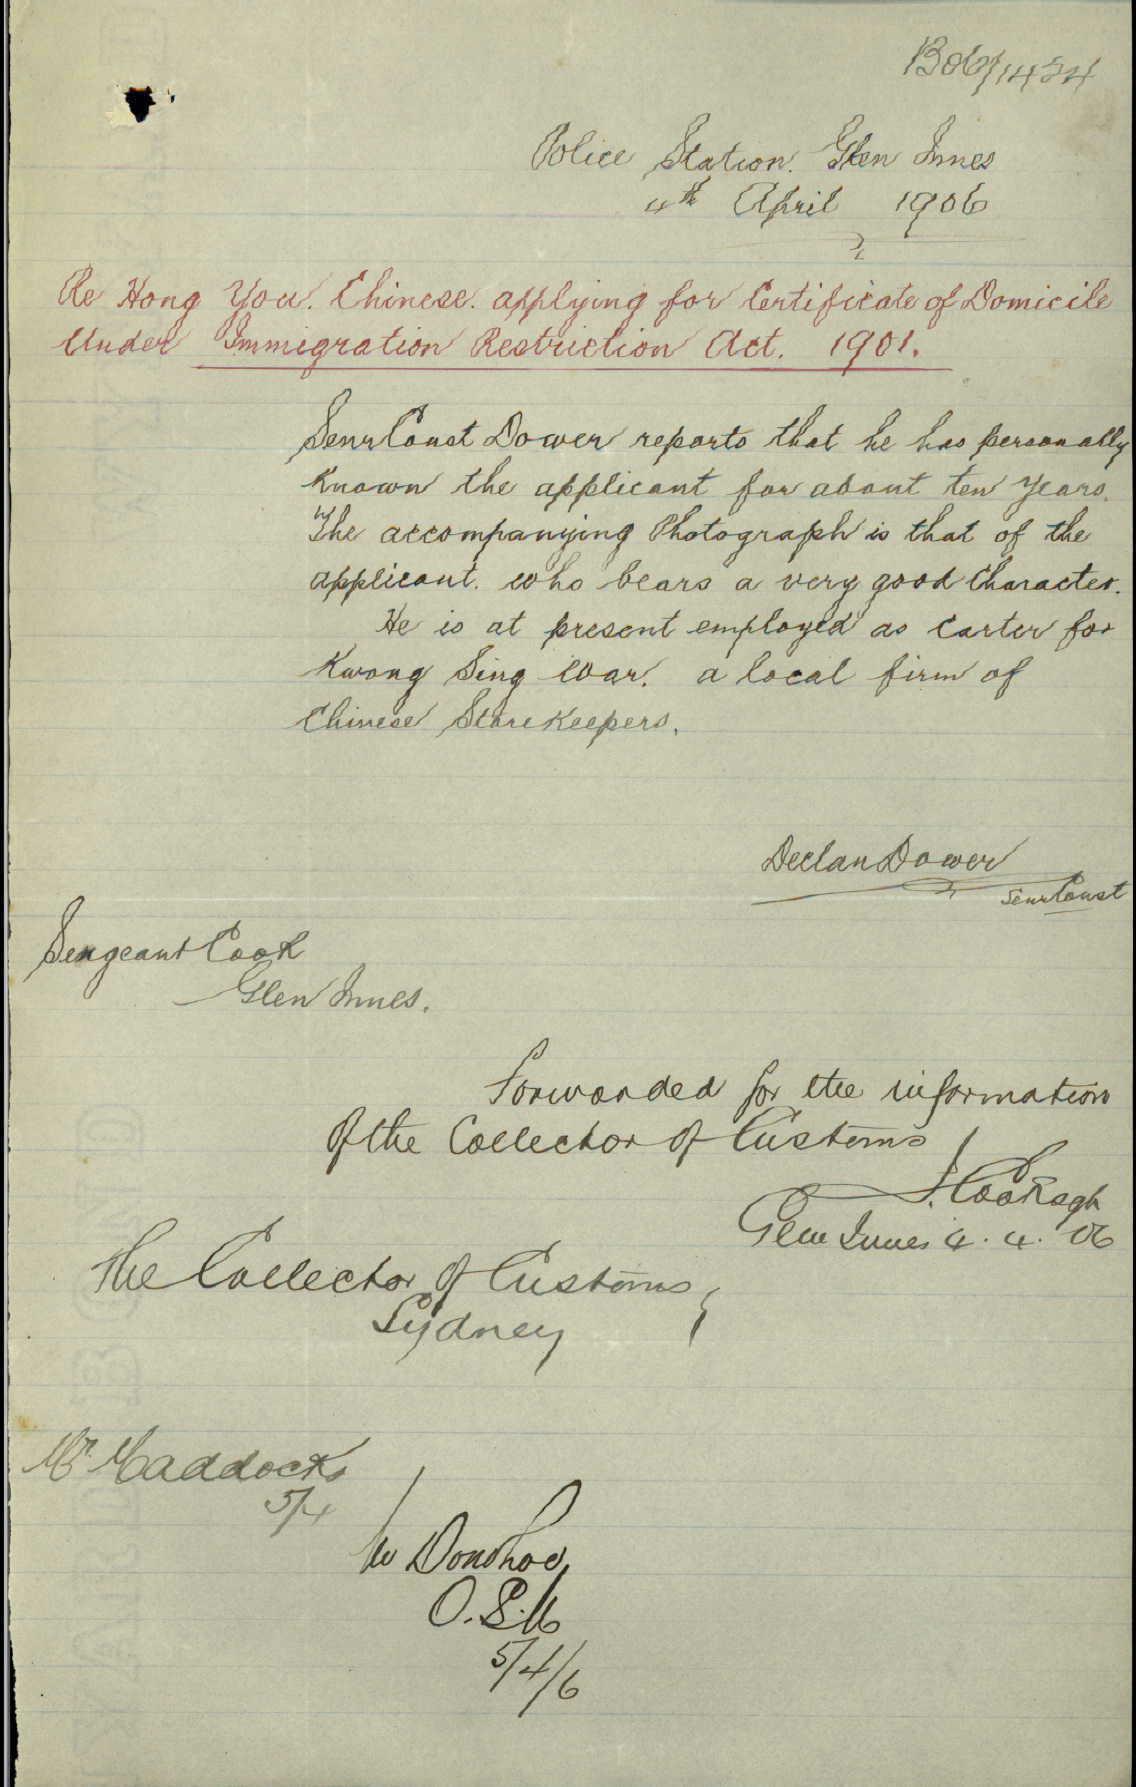 B06/1434
Police Station. Glen Innes
4th April 1906
Re Hong You. Chinese. applying for Certificate of Domicile
Under Immigration Restriction Act. 1901.
Senr Const Dower reports that he has personally
Known the applicant for about ten years.
The accompanying Photograph is that of the
applicant. who bears a very good Character.
He is at present employed as Carter for
Kwong Sing War. a local firm of
Chinese Store Keepers.
Declan Dower
Senr Const
Sergeant Cook
Glen Innes.
Forwarded for the information
Of the Collector of Customs
J. Cook Sgt
Glen Innes 4. 4. 06
The Collector of Customs
Sydney
Mr Maddocks
5/4
W Donohoe
5/4/6